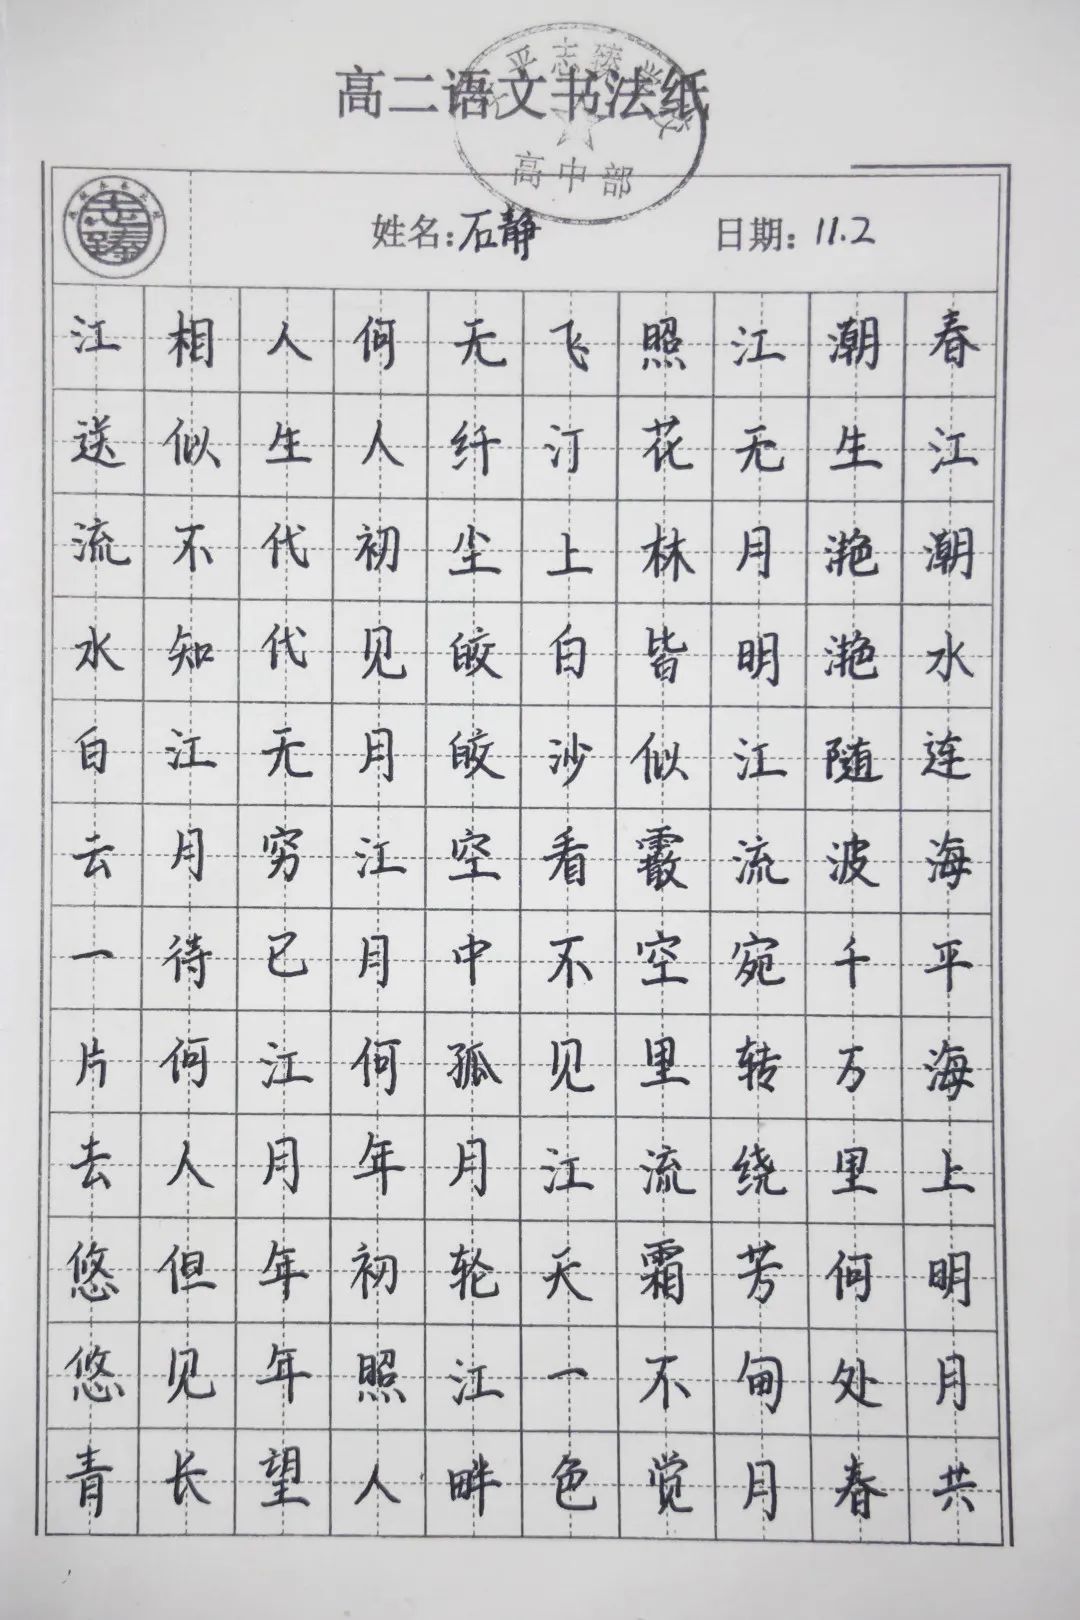 高二语文书法纸
平志臻学校
高中部
志臻
姓名:石静
日期:11.2
春江潮水连海平海上明月共
潮生滟滟随波千万里何处春
江无月明江流宛转绕芳甸月
照花林皆似霰空里流霜不觉
飞汀上白沙看不见江天一色
无纤尘皎皎空中孤月轮江畔
何人初见月江月何年初照人
人生代代无穷已江月年年望
相似不知江月待何人但见长
江送流水白云一片去悠悠青